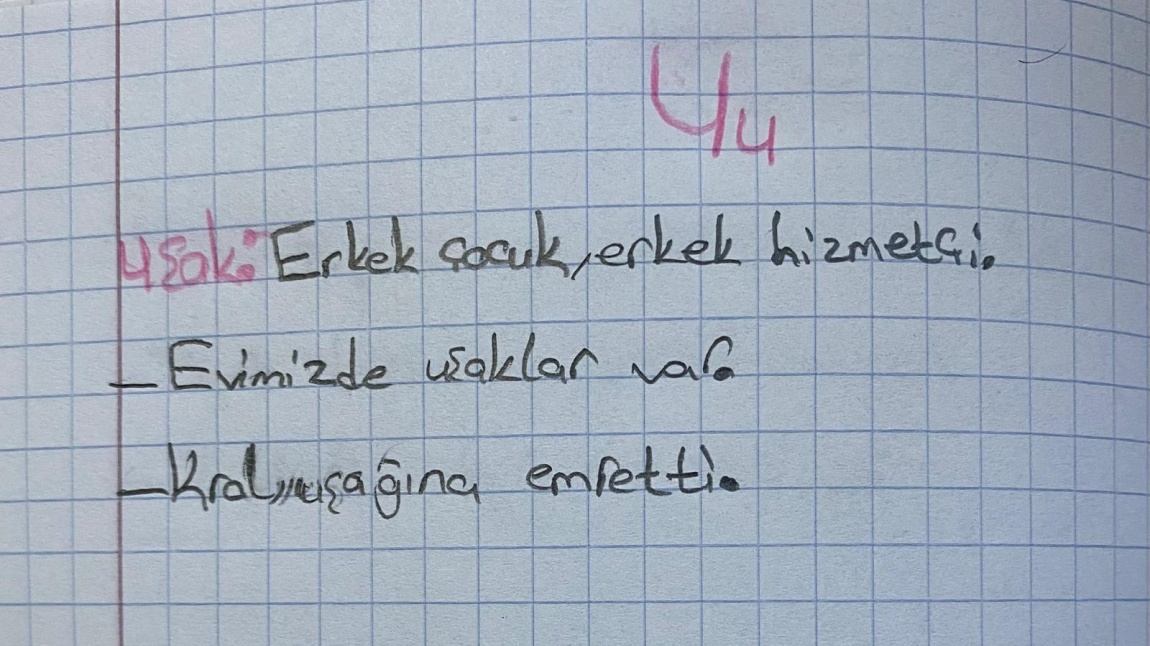 Uu
uşak: Erkek çocuk, erkek hizmetçi.
— Evimizde uşaklar var.
— Kral, uşağına emretti.